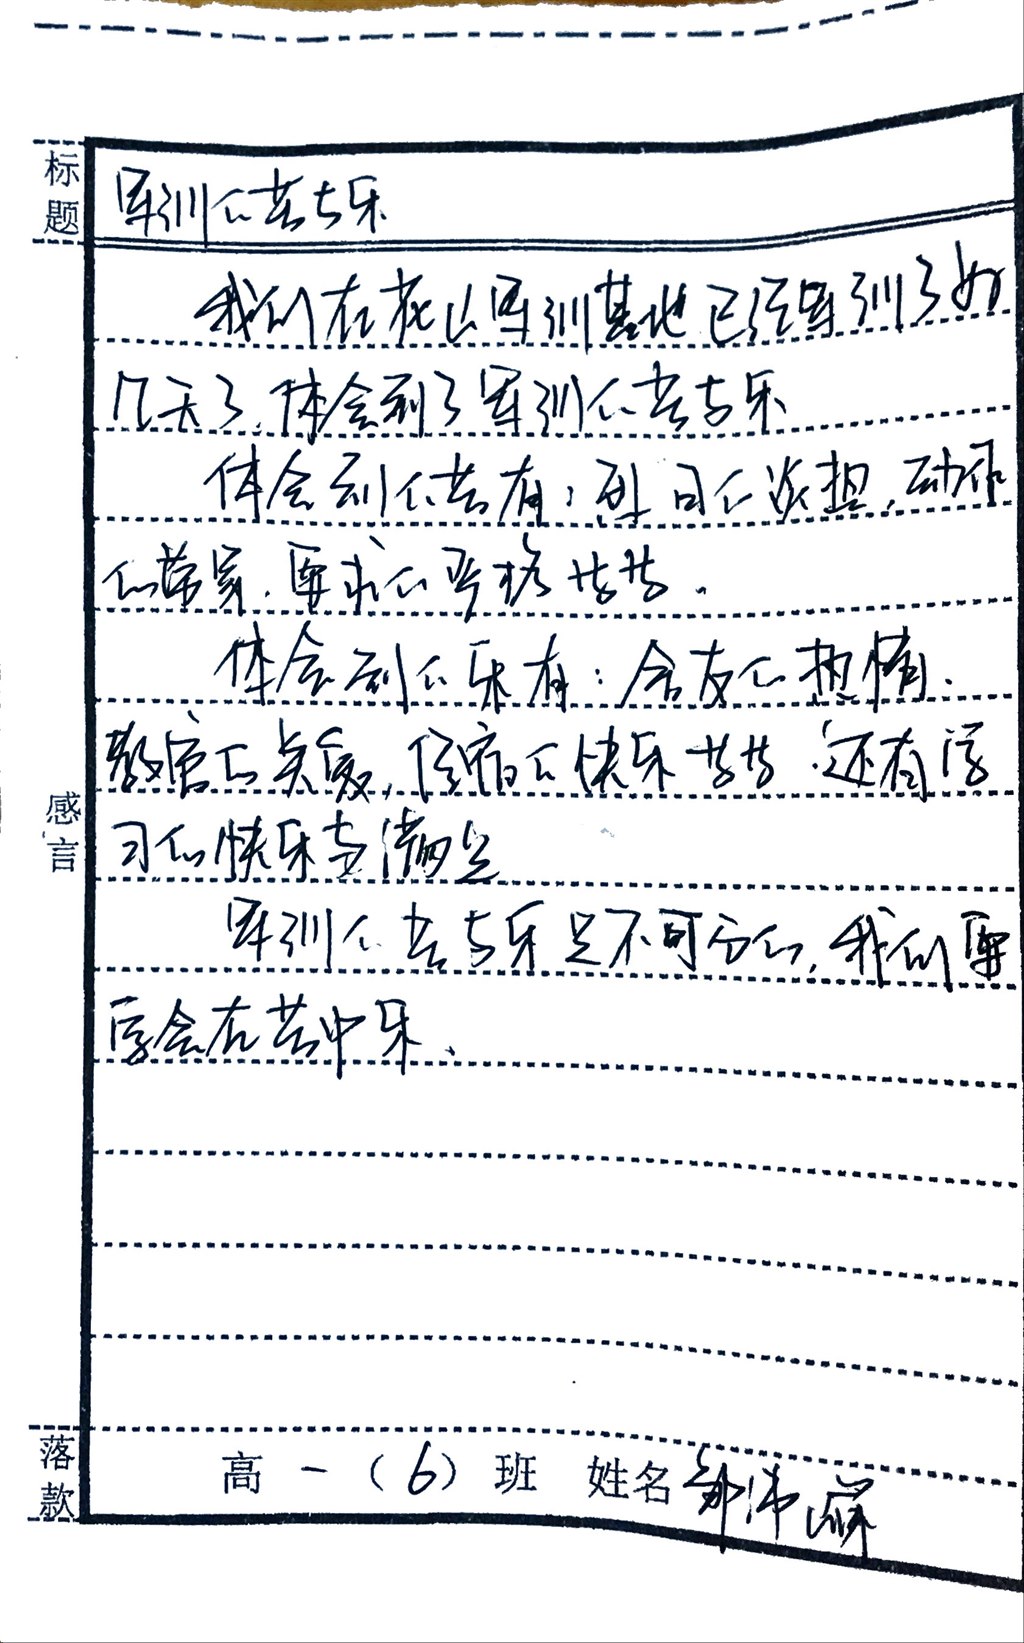 标题
军训的苦与乐
我们在花山军训基地已经军训了好
几天了，体会到了军训的苦与乐
体会到的苦有：烈日的滚烫，动作
的繁多，要求的严格等等。
体会到的乐有：舍友的热情、
教官的关爱，住宿的快乐等等．还有学
习的快乐与满足
感言
军训的苦与乐是不可分的，我们要
学会在苦中乐、
落款
高一（6）班 姓名